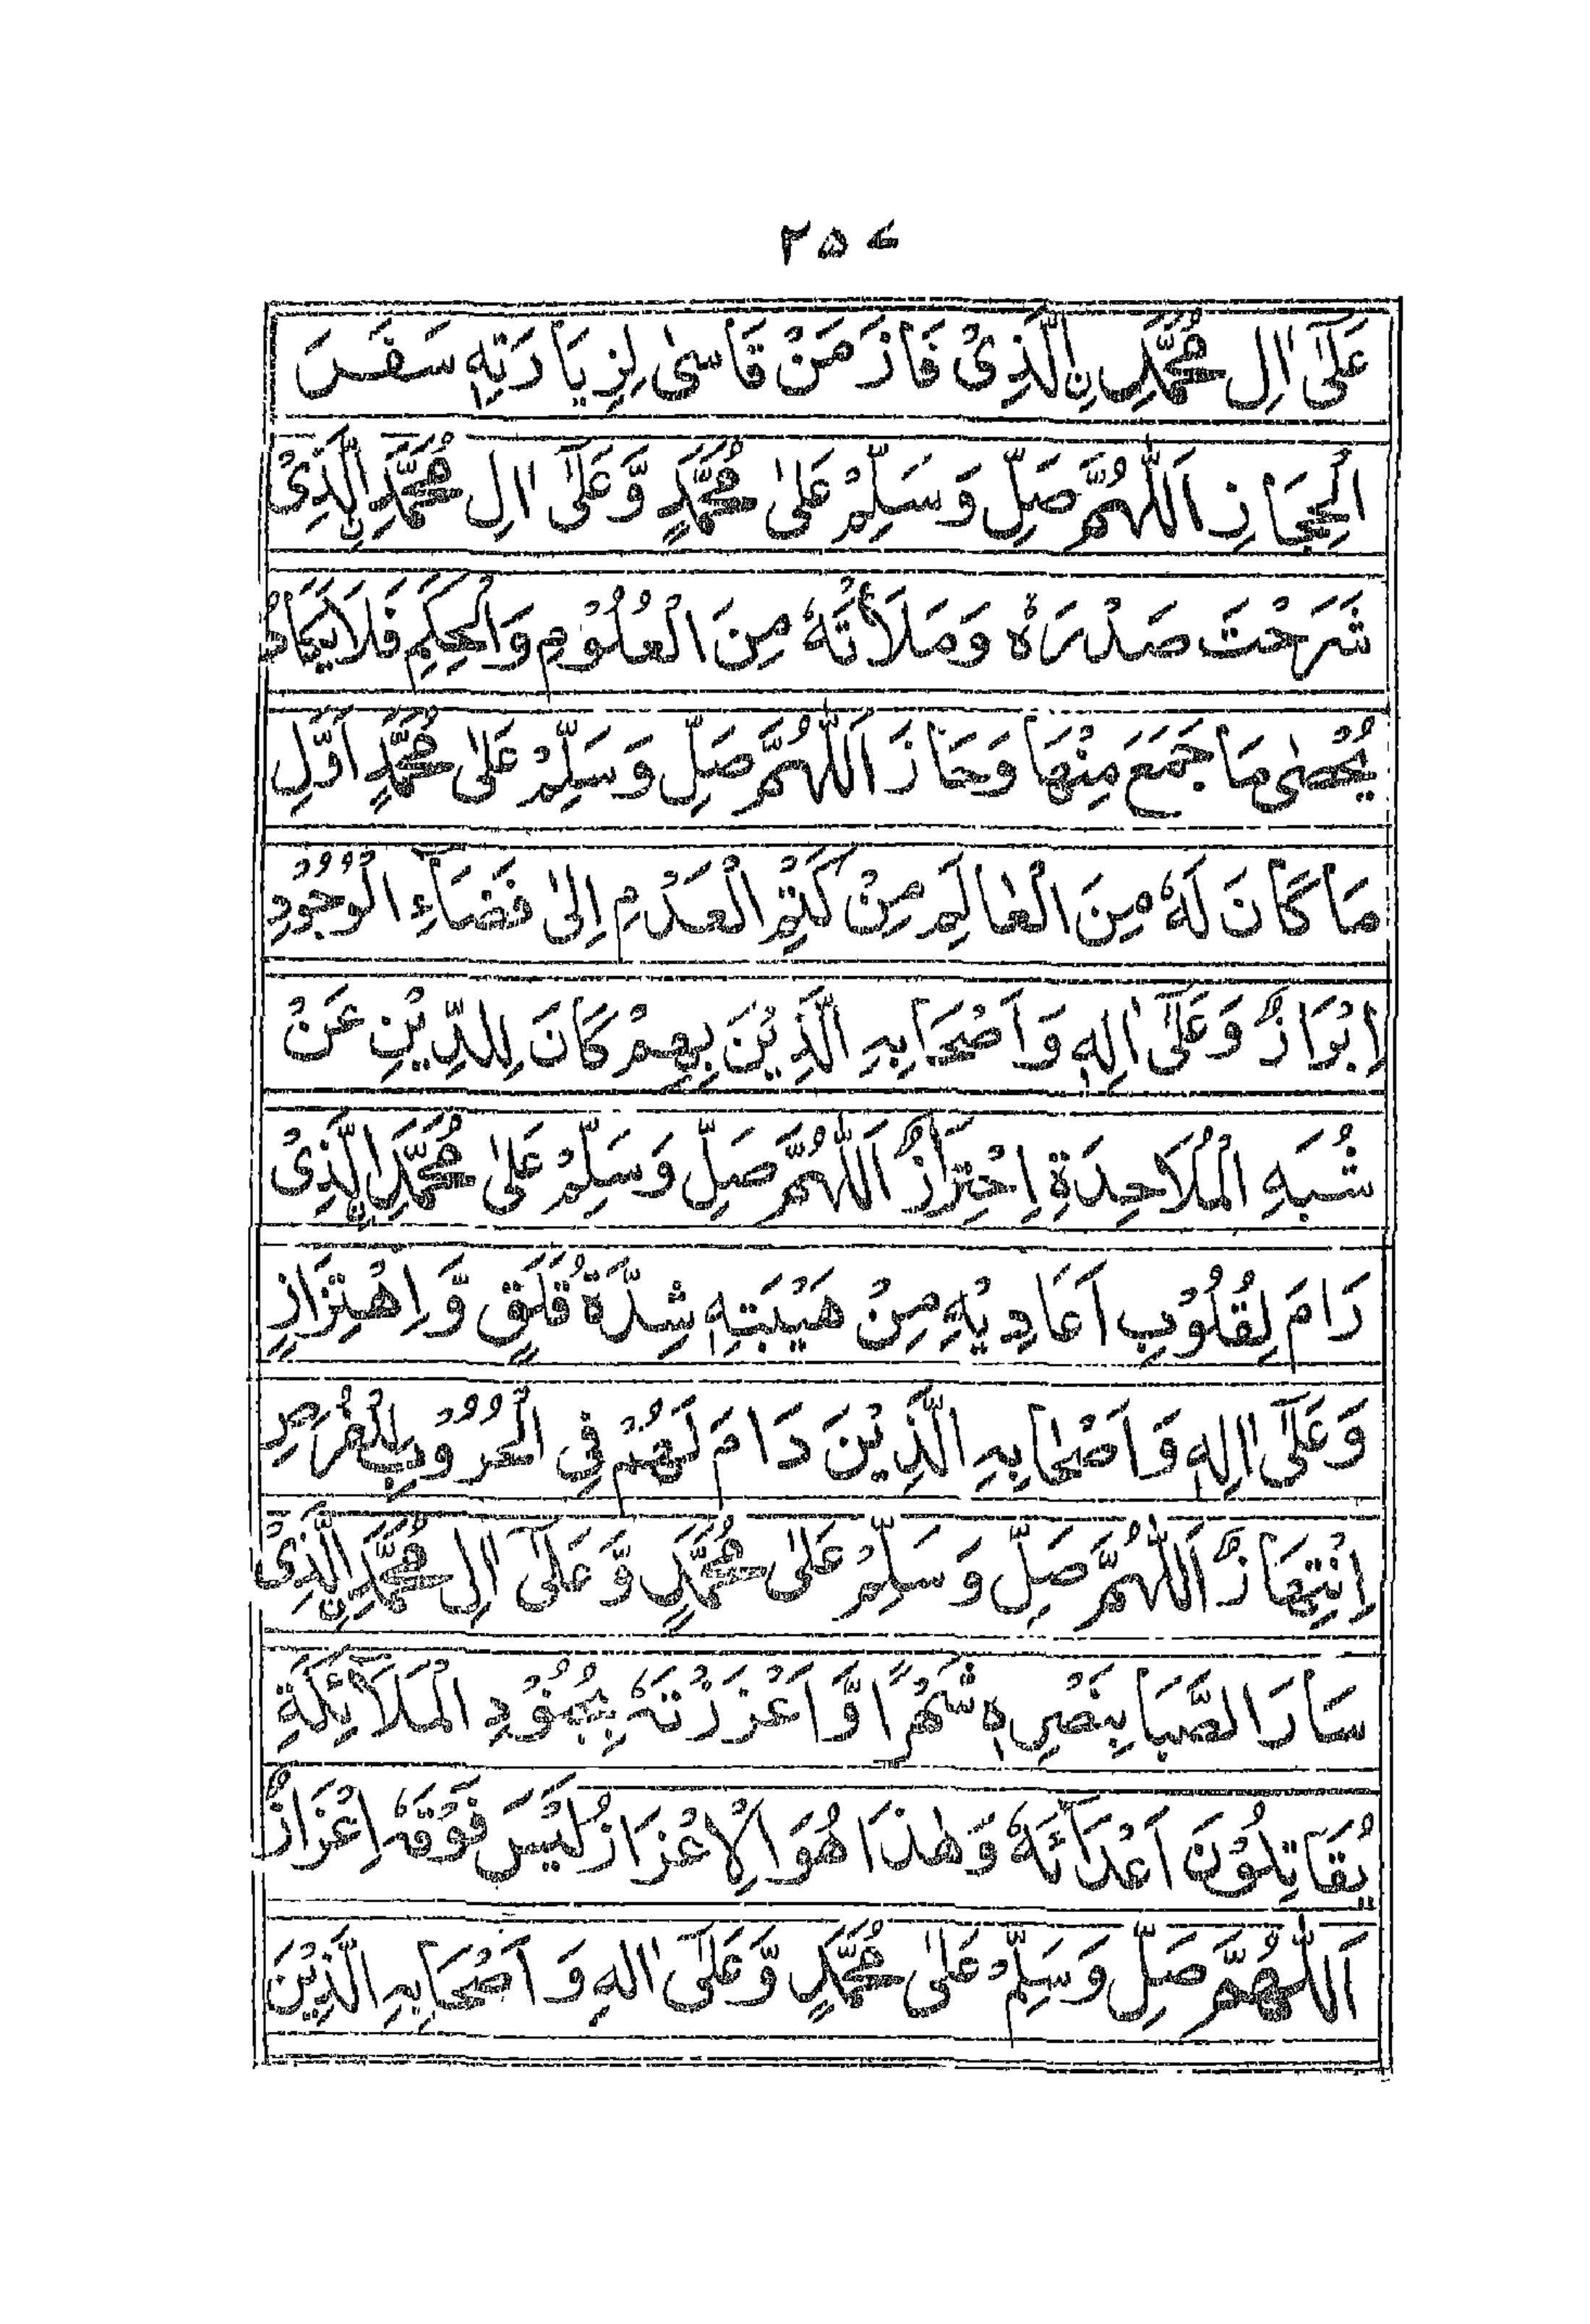 ۲۵۷
عَلٰٓى اٰلِ مُحَمَّدِ نِ الَّذِىْ فَازَ مَنْ قَاسٰى لِزِيَارَتِهٖ سَفَرَ
الْحِجَازِ اَللّٰهُمَّ صَلِّ وَسَلِّمْ عَلٰى مُحَمَّدٍ وَّعَلٰٓى اٰلِ مُحَمَّدِ نِ الَّذِىْ
شَرَحْتَ صَدْرَهٗ وَمَلَأْتَهٗ مِنَ الْعُلُوْمِ وَالْحِكَمِ فَلَا يَكَادُ
يُحْصٰى مَا جَمَعَ مِنْهَا وَحَازَ اَللّٰهُمَّ صَلِّ وَسَلِّمْ عَلٰى مُحَمَّدٍ اَوَّلِ
مَا كَانَ لَهٗ مِنَ الْعَالَمِ مِنْ كَتْمِ الْعَدَمِ اِلٰى فَضَآءِ الْوُجُوْدِ
اِبْوَازٌ وَعَلٰٓى اٰلِهٖ وَاَصْحَابِهِ الَّذِيْنَ بِهِمْ كَانَ لِلدِّيْنِ عَنْ
شُبَهِ الْمُلَاحِدَةِ اِحْتِرَازٌ اَللّٰهُمَّ صَلِّ وَسَلِّمْ عَلٰى مُحَمَّدِ نِ الَّذِىْ
رَامَ لِقُلُوْبِ اَعَادِيْهِ مِنْ هَيْبَتِهٖ شِدَّةُ قَلَقٍ وَّاِهْتِزَازٍ
وَعَلٰٓى اٰلِهٖ وَاَصْحَابِهِ الَّذِيْنَ دَامَ لَهُمْ فِى الْحُرُوْبِ لِلْفُرَصِ
اِنْتِهَازٌ اَللّٰهُمَّ صَلِّ وَسَلِّمْ عَلٰى مُحَمَّدٍ وَّعَلٰٓى اٰلِ مُحَمَّدِ نِ الَّذِىْ
سَارَ الصَّبَا بِنَصْرِهٖ شَهْرًا وَّاَعْزَزْتَهٗ بِجُنُوْدِ الْمَلَآئِكَةِ
يُقَاتِلُوْنَ اَعْدَائَهٗ وَهٰذَا هُوَ الْاِعْزَازُ لَيْسَ فَوْقَهٗ اِعْزَازٌ
اَللّٰهُمَّ صَلِّ وَسَلِّمْ عَلٰى مُحَمَّدٍ وَّعَلٰٓى اٰلِهٖ وَاَصْحَابِهِ الَّذِيْنَ